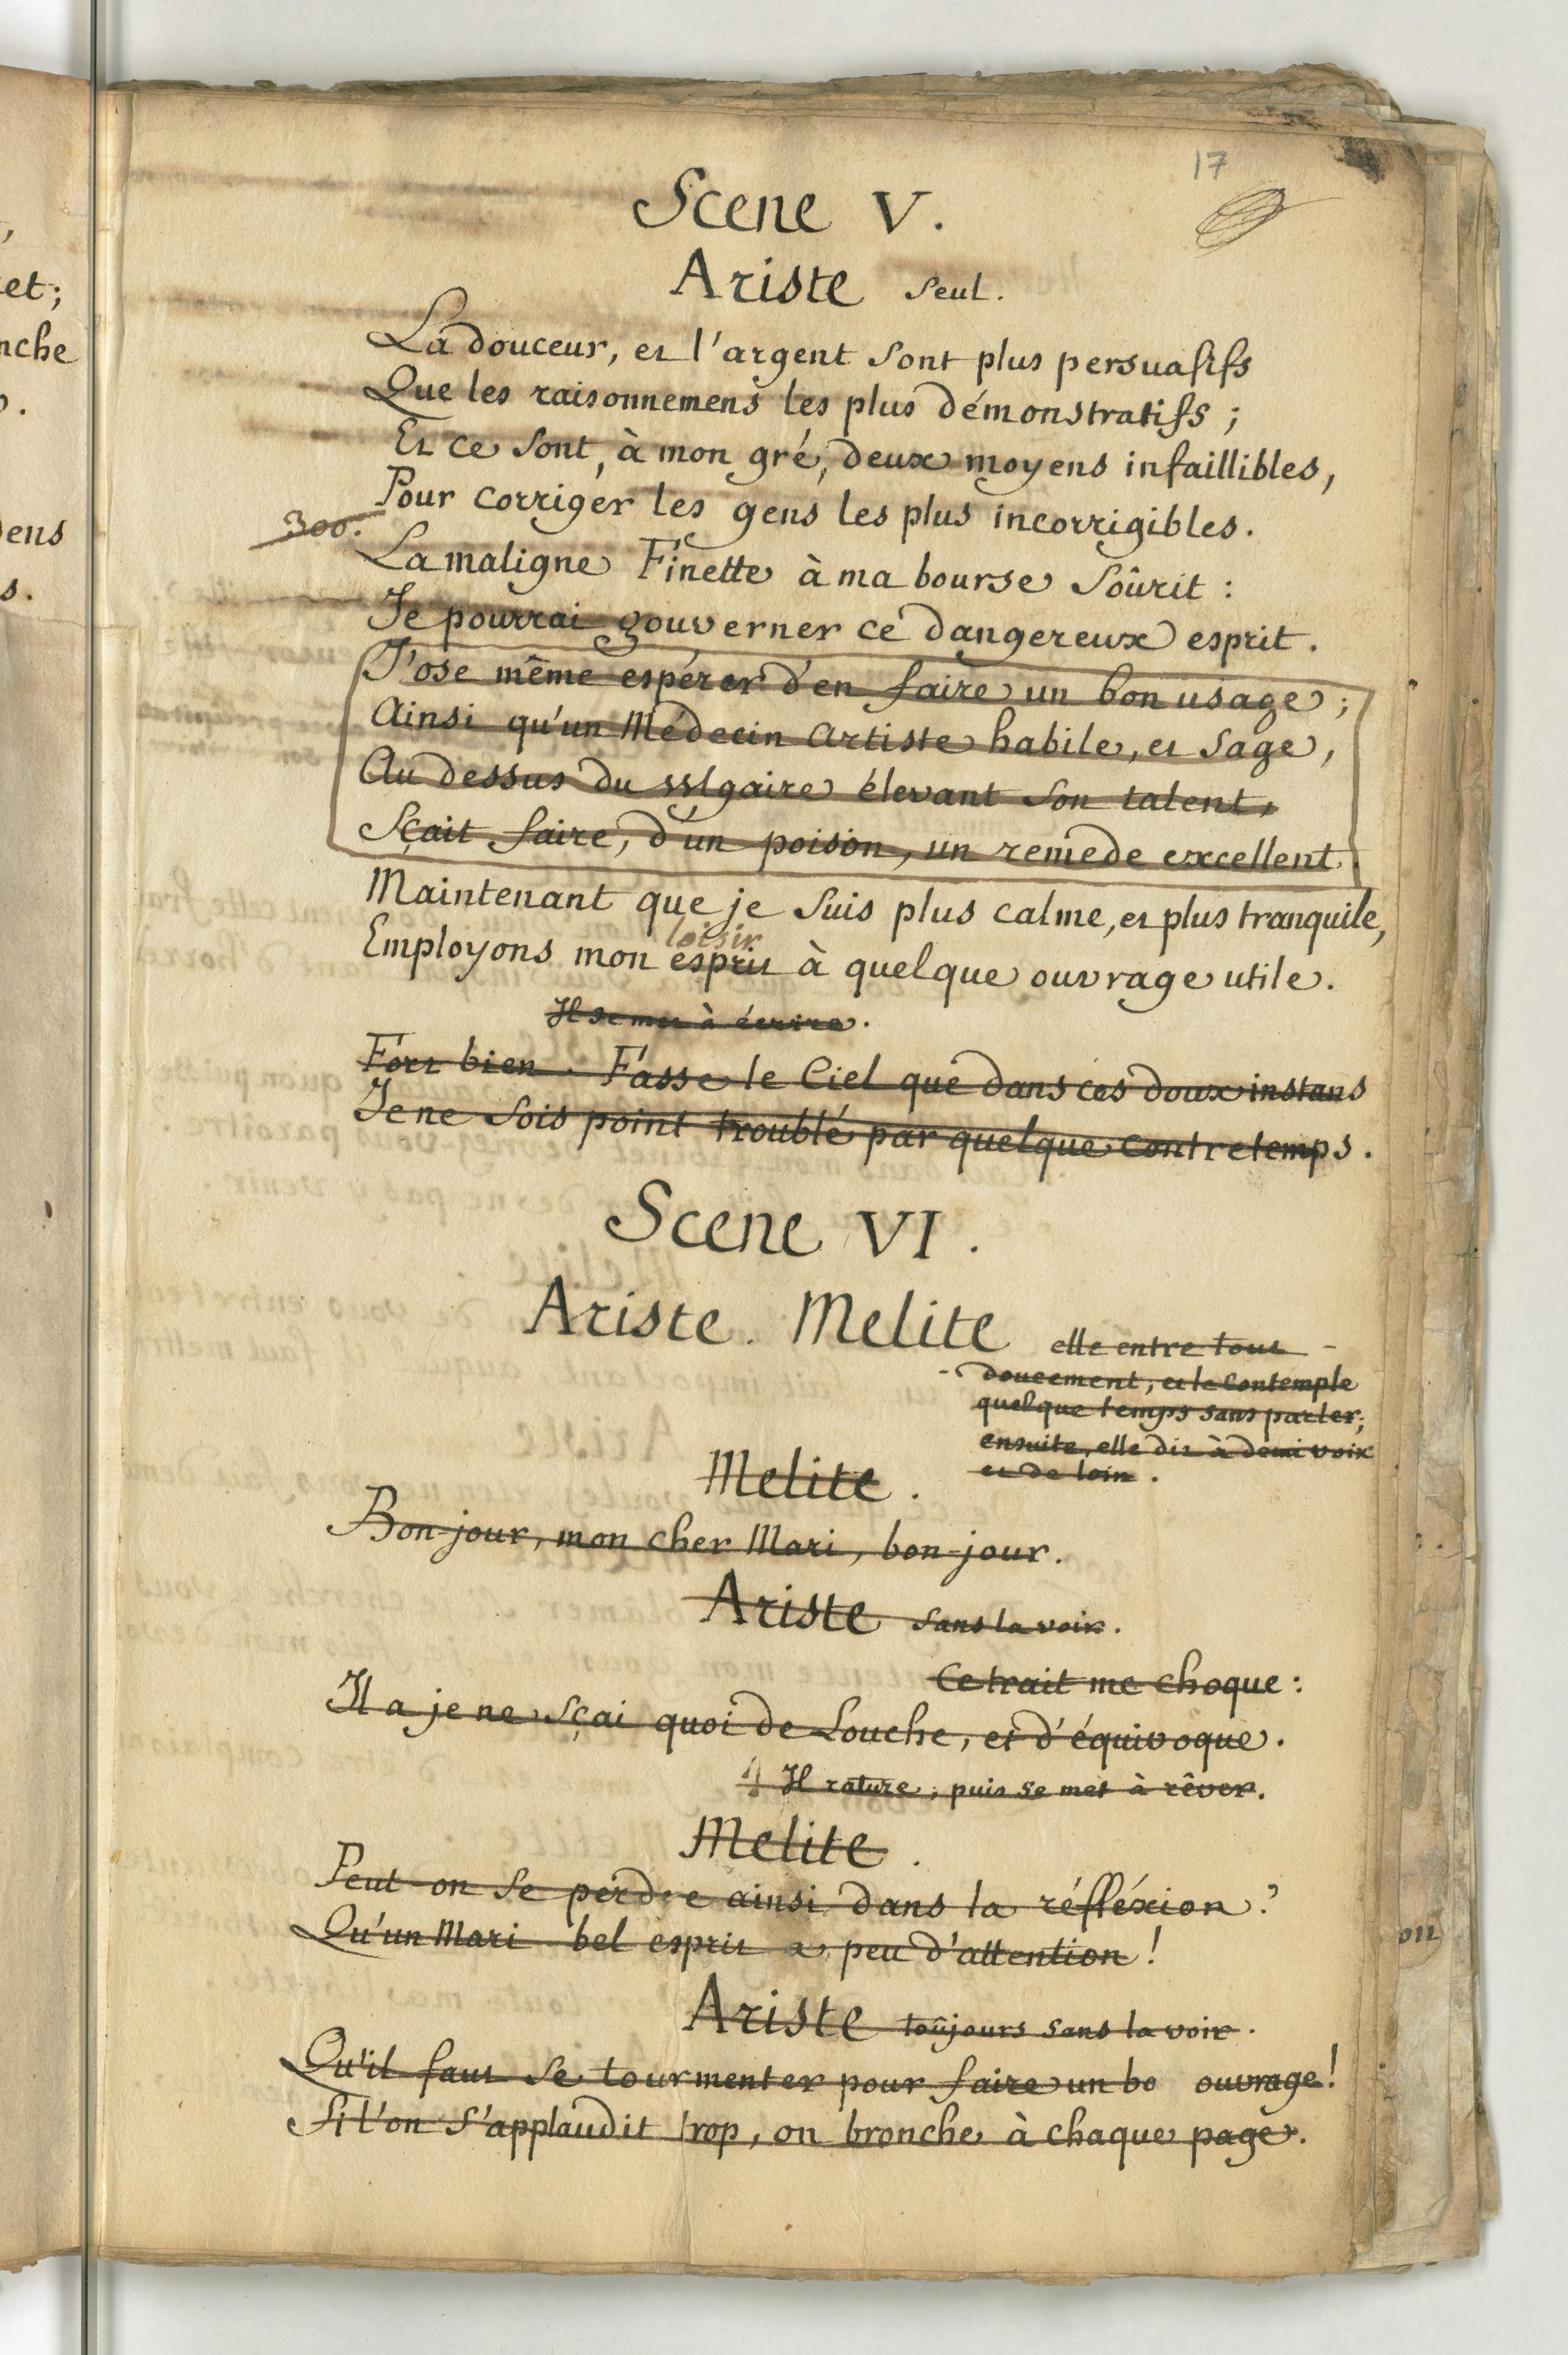 17
Scene V.
Ariste seul.
La douceur, et l'argent sont plus persuasifs
Que les raisonnemens les plus démonstratifs ;
Et ce sont, à mon gré, deux moyens infaillibles,
Pour corriger les gens les plus incorrigibles.
300.
La maligne Finette à ma bourse soûrit :
Je pourrai gouverner ce dangereux esprit.
J'ose même espérer d'en faire un bon usage ;
Ainsi qu'un Médecin Artiste habile, et sage,
Au dessus du vulgaire élevant son talent,
Sçait faire, d'un poison, un remede excellent.
Maintenant que je suis plus calme, et plus tranquile,
loisir
Employons mon esprit à quelque ouvrage utile.
Il se met à écrire.
Fort bien. Fasse le Ciel que dans ces doux instans
Je ne sois point troublé par quelque contretemps.
Scene VI.
Ariste. Melite elle entre tout
doucement, et le contemple
quelque temps sans parler;
ensuite, elle dit à demi voix
et de loin.
Melite.
Bon-jour, mon cher Mari, bon-jour.
Ariste sans la voir.
Ce trait me choque :
Il a je ne sçai quoi de Louche, et d'équivoque.
Il rature, puis se met à rêver.
Melite.
Peut-on se perdre ainsi dans la réfléxion ?
Qu'un Mari bel esprit a peu d'attention !
Ariste toûjours sans la voir.
Qu'il faut se tourmenter pour faire un bo ouvrage !
Si l'on s'applaudit trop, on bronche à chaque page.
et;
nche
dens
s.
on